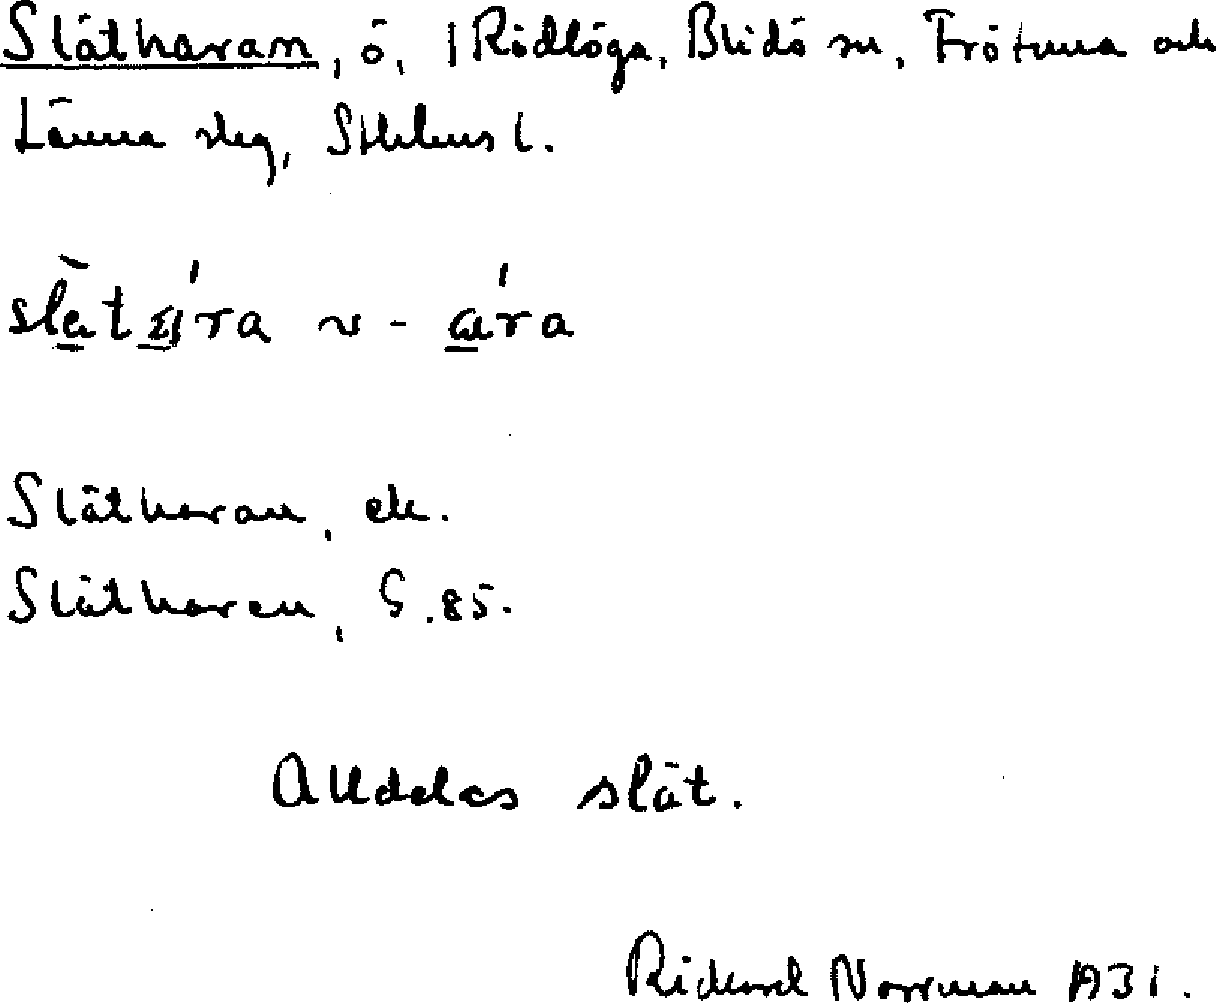 Slätharan, ö, i Rödlöga, Blidö sn, Frötuna och
Länna skg, Sthlms l.
Slätharan, ek.
Slätharen, G.85.
Alldeles slät.
Rickard Norrman 1931.